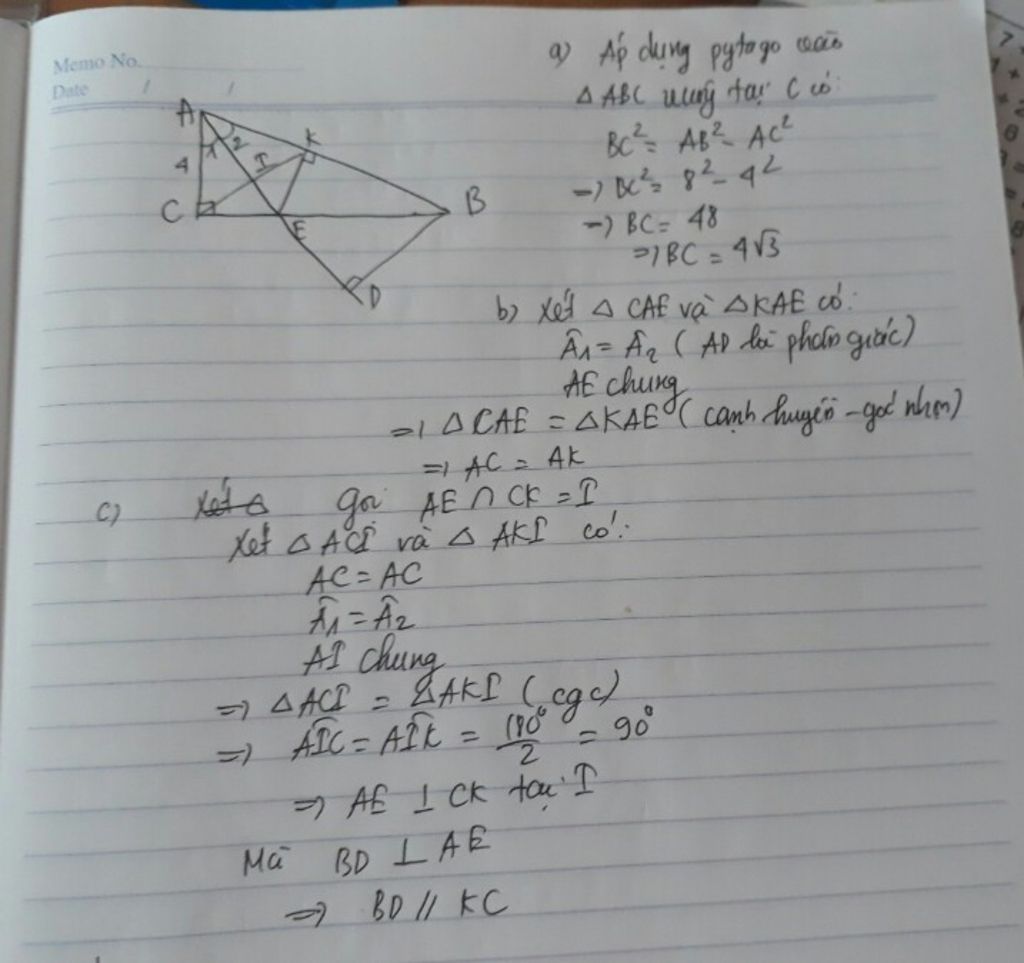 Memo No.
Date / /
A
1 2
4
I
K
C
E
B
D
a) Áp dụng pytago vào
△ABC vuông tại C có:
BC² = AB² - AC²
=> BC² = 8² - 4²
=> BC = 48
=> BC = 4√3
b) Xét △ CAE và △KAE có:
Â₁ = Â₂ ( AD là phân giác)
AE chung
=> △CAE = △KAE ( cạnh huyền - góc nhọn)
=> AC = AK
c) Xét △ gọi AE ∩ CK = I
Xét △ ACI và △ AKI có:
AC = AC
Â₁ = Â₂
AI chung
=> △ACI = △AKI ( cgc)
=> AÎC = AÎK = 180°/2 = 90°
=> AE ⊥ CK tại I
Mà BD ⊥ AE
=> BD // KC